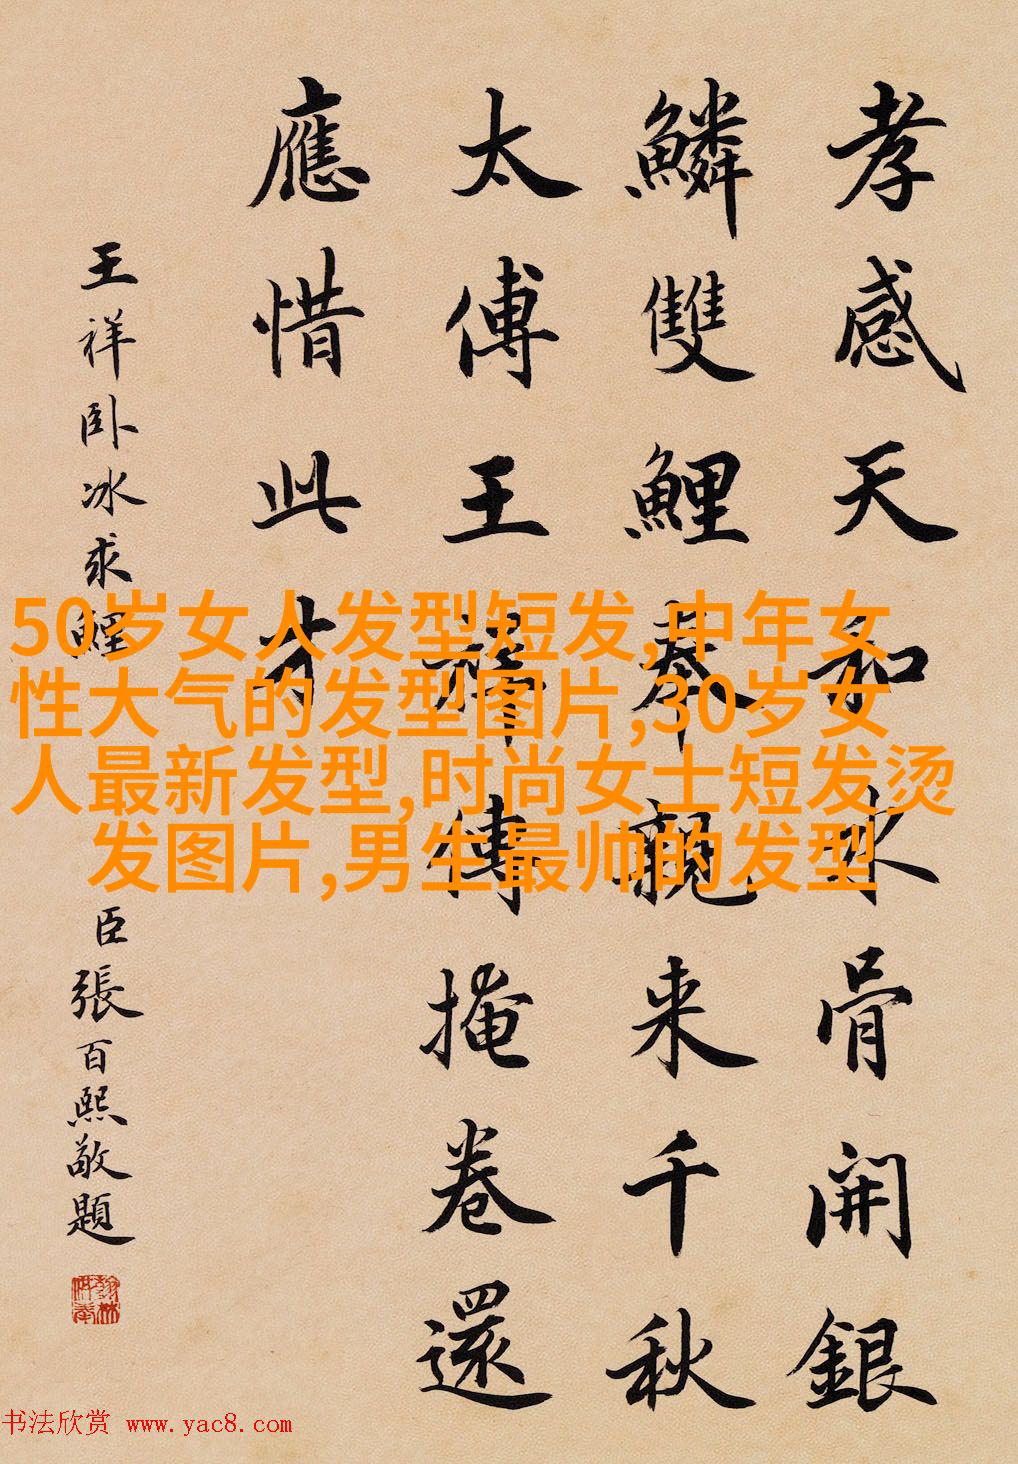 孝感天和冰骨開銀
鱗雙鯉奉親来千秋
太傅王祥傳掩卷還
應惜此才
王祥卧冰求鯉
臣張百熙敬題
50岁女人发型短发,中年女
性大气的发型图片,30岁女
人最新发型,时尚女士短发烫
发图片,男生最帅的发型
书法欣赏 www.yac8.com